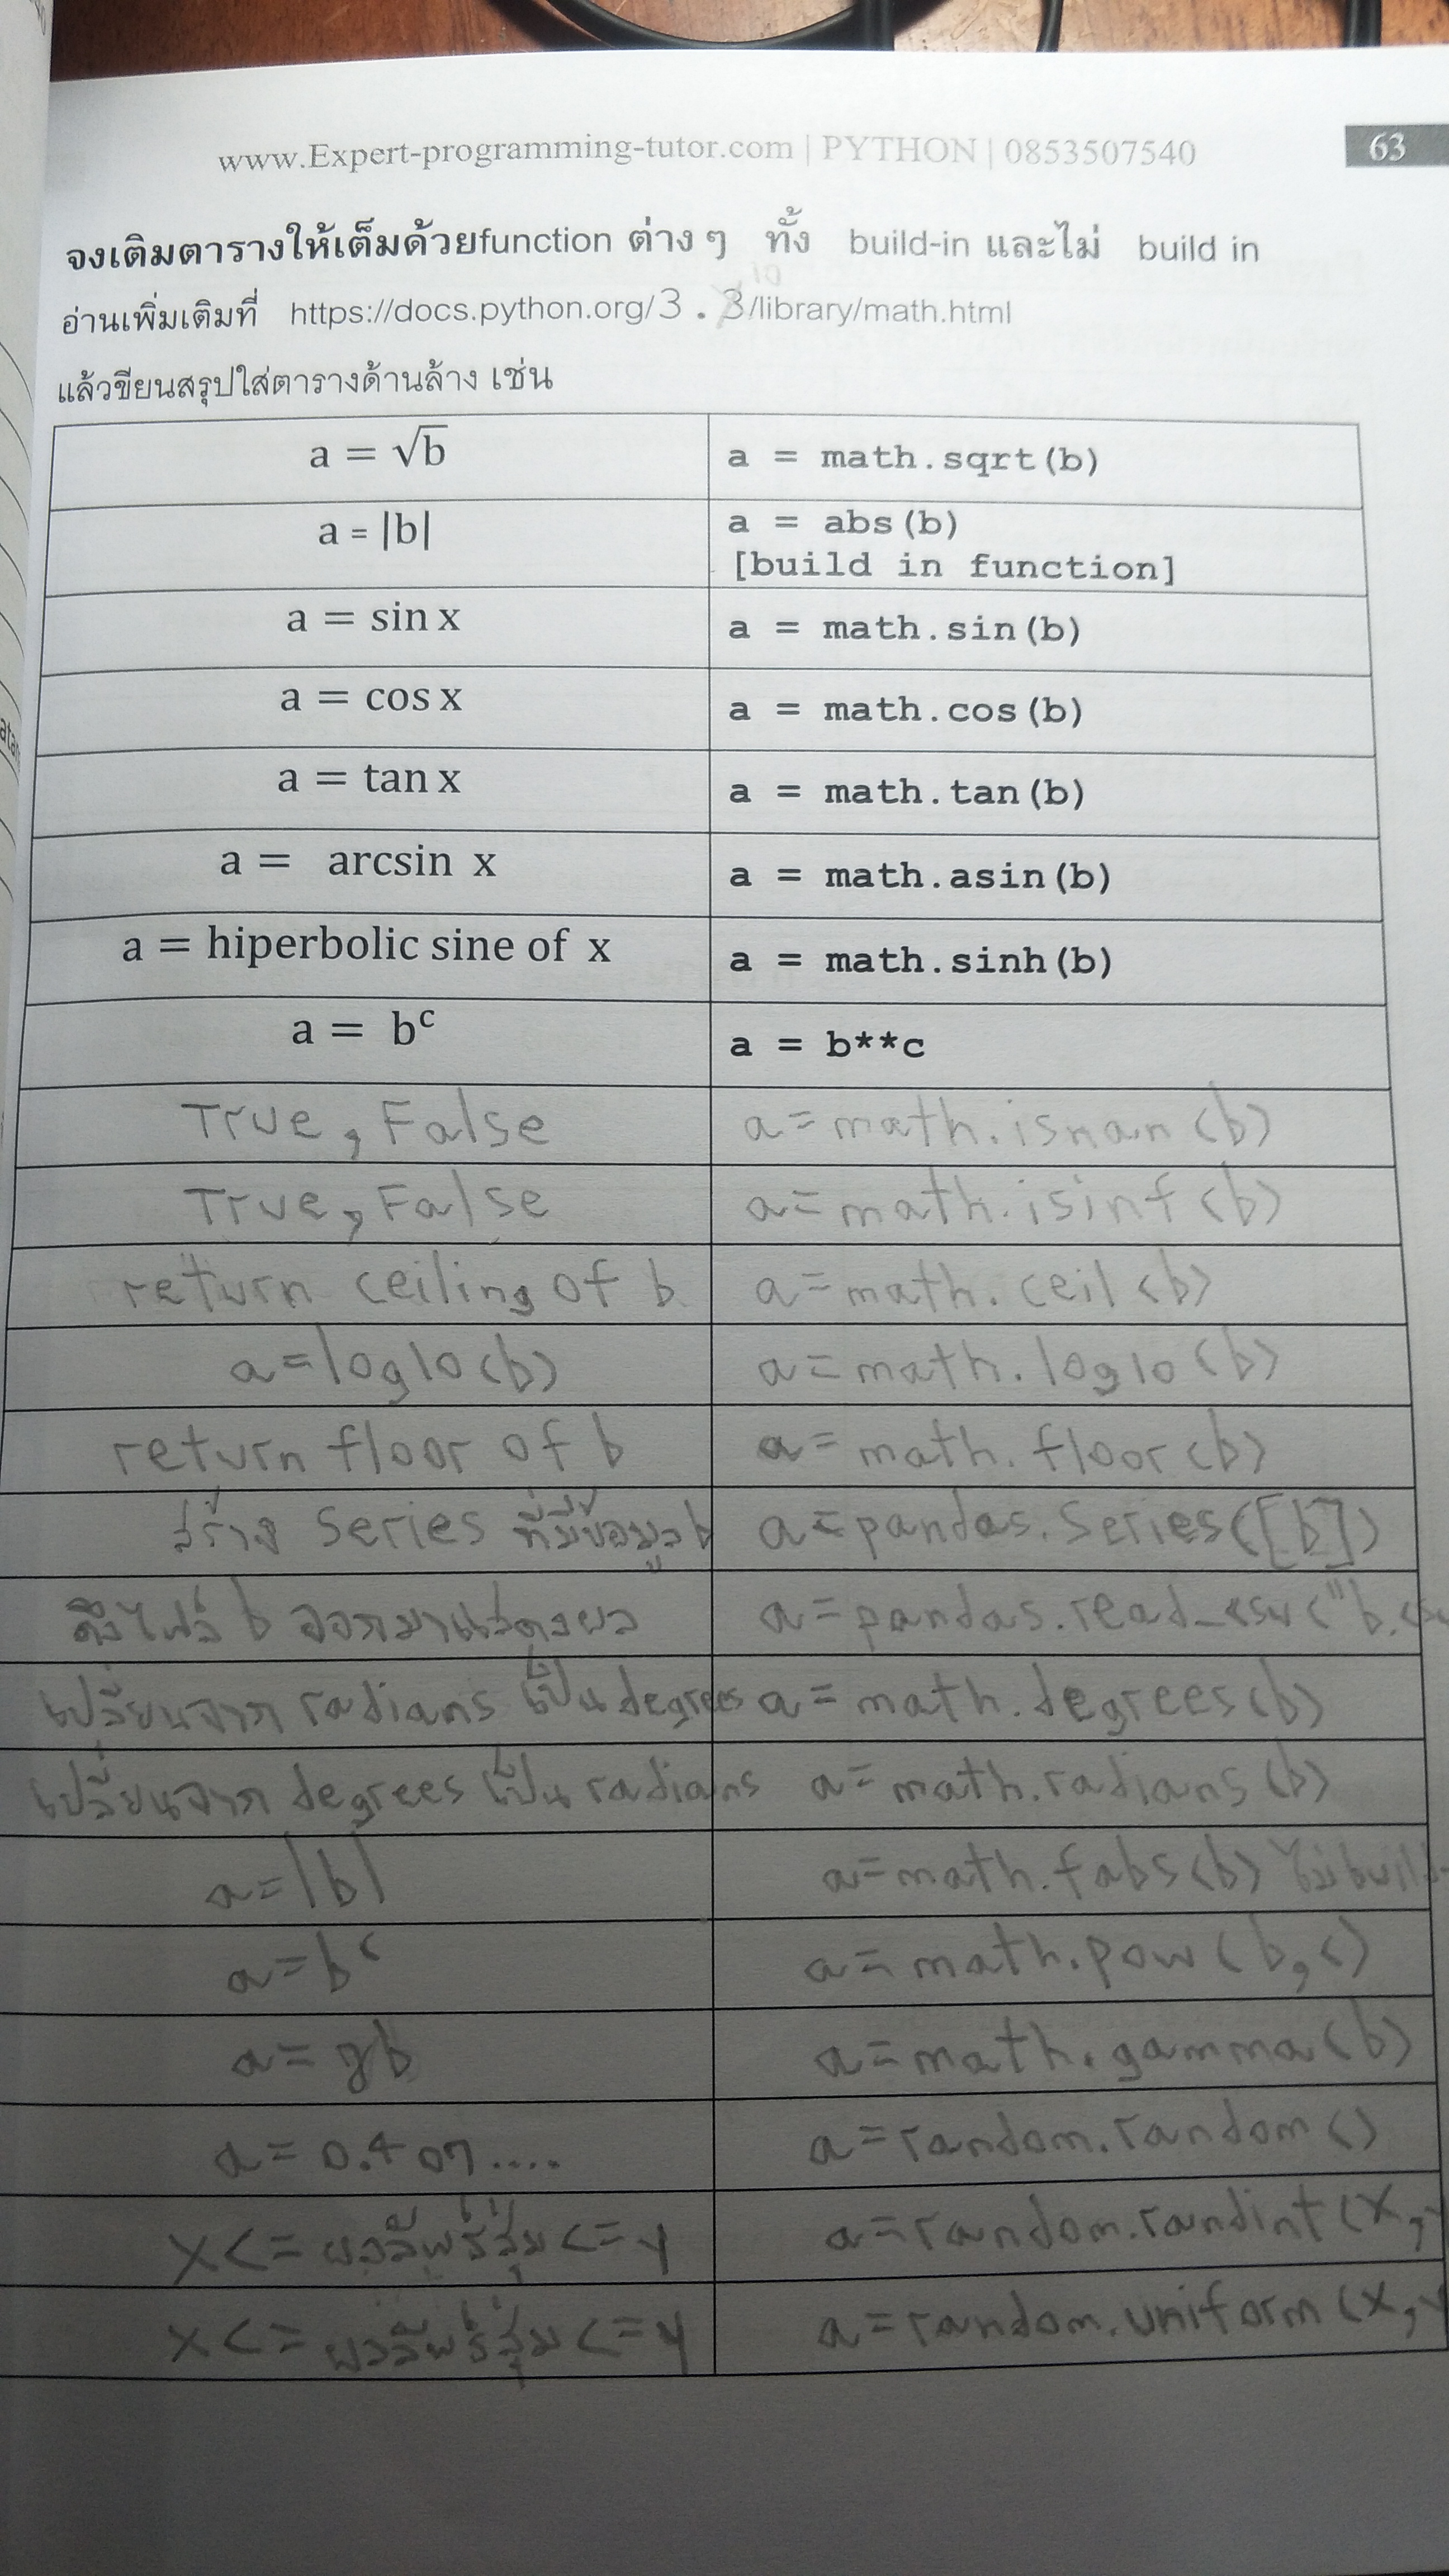 www.Expert-programming-tutor.com | PYTHON | 0853507540
63
จงเติมตารางให้เต็มด้วยfunction ต่าง ๆ ทั้ง build-in และไม่ build in
10
อ่านเพิ่มเติมที่ https://docs.python.org/3.3/library/math.html
แล้วขียนสรุปใส่ตารางด้านล้าง เช่น
a = √b a = math.sqrt(b)
a = |b| a = abs(b)
[build in function]
a = sin x a = math.sin(b)
a = cos x a = math.cos(b)
a = tan x a = math.tan(b)
a = arcsin x a = math.asin(b)
a = hiperbolic sine of x a = math.sinh(b)
a = b^c a = b**c
True, False a=math.isnan(b)
True, False a=math.isinf(b)
return ceiling of b a=math.ceil(b)
a=log10(b) a=math.log10(b)
return floor of b a=math.floor(b)
สร้าง Series ที่มีข้อมูล b a=pandas.Series([b])
ดึงไฟล์ b ออกมาแสดงผล a=pandas.read_csv("b.cs
เปลี่ยนจาก radians เป็น degrees a=math.degrees(b)
เปลี่ยนจาก degrees เป็น radians a=math.radians(b)
a=|b| a=math.fabs(b) ไม่build-
a=b^c a=math.pow(b,c)
a=gb a=math.gamma(b)
a=0.407.... a=random.random()
x<=ผลลัพธ์สุ่ม<=y a=random.randint(x,y
x<=ผลลัพธ์สุ่ม<=y a=random.uniform(x,y